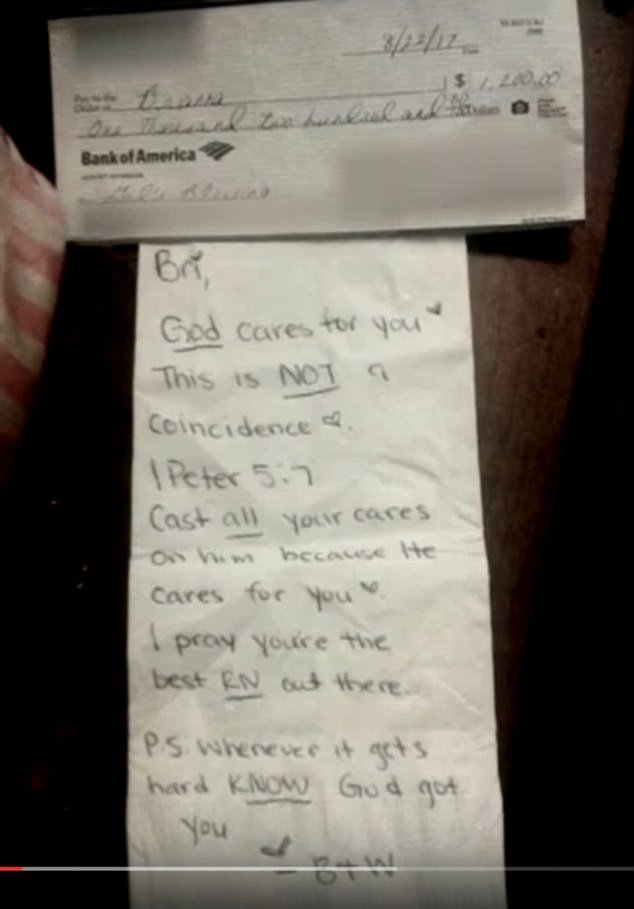 8/22/17
Pay to the
Order of
$ 1,200.00
One Thousand two hundred and Dollars
Bank of America
God's Blessing
Bri,
God cares for you
This is NOT a
coincidence.
1 Peter 5:7
Cast all your cares
on him because He
cares for you.
I pray you're the
best RN out there.
P.S. Whenever it gets
hard KNOW God got
you
- B+W